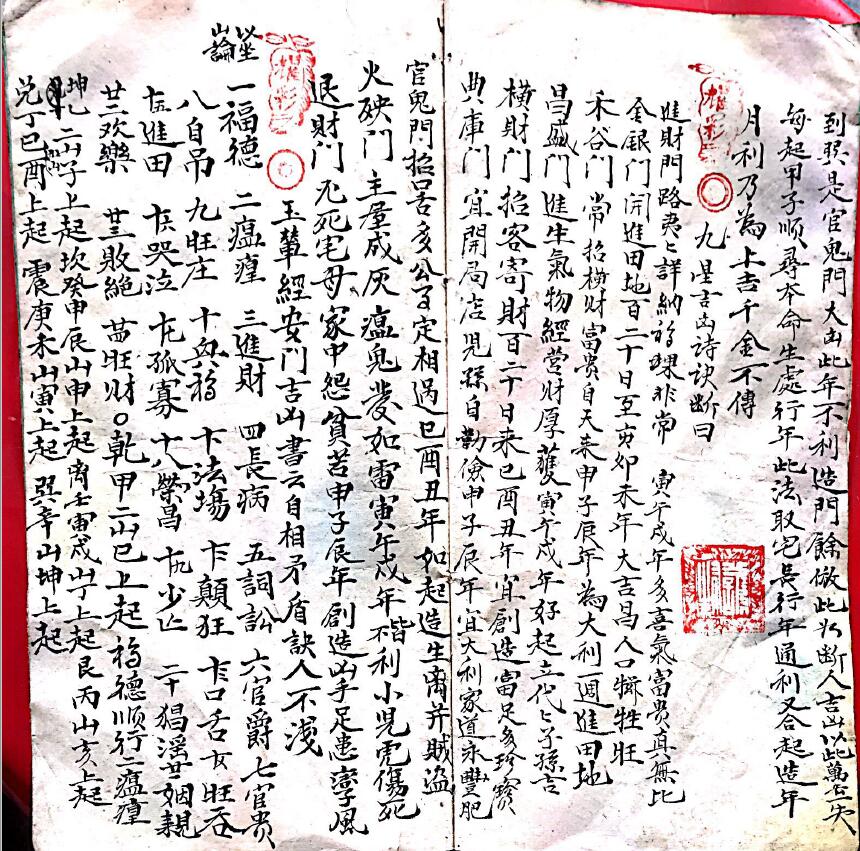 到巽是官鬼門大凶此年不利造門餘倣此以斷人吉凶以此萬無一失
每起甲子順尋本命生處行年此法取宅長行年通利又合起造年
月利乃為上吉千金不傳
九星吉凶詩訣斷曰
進財門路要詳納福祿非常 寅午戌年多喜氣富貴真無比
金銀門開進田地百二十日至亥卯未年大吉昌人口犧牲旺
禾谷門常招橫財富貴自天來申子辰年為大利一週進田地
昌盛門進生氣物經營財厚獲寅午戌年好起立代〻子孫吉
橫財門招客寄財百二十日來巳酉丑年宜創造富足多珍寶
典庫門宜開局店兒孫自勤儉申子辰年宜大利家道永豐肥
官鬼門招口舌多公了定相遇巳酉丑年如起造生离并賊盜
火殃門主屋成灰瘟鬼發如雷寅午戌年不利小兒虎傷死
退財門尤死宅母家中怨貧苦申子辰年創造凶手足患孿風
玉輦經安門吉凶書云自相矛盾訣人不淺
以坐山論
一福德 二瘟瘟 三進財 四長病 五詞訟 六官爵 七官貴
八自吊 九旺庄 十興福 十一法場 十二顛狂 十三口舌 十四旺蚕
十五進田 十六哭泣 十七孤寡 十八榮昌 十九少亡 二十猖淫 廿一姻親
廿二欢樂 廿三敗絕 廿四旺財○乾甲二山巳上起福德順行二瘟瘟
坤乙二山子上起坎癸申辰山申上起离壬寅戌山丁上起艮丙山亥上起
兌丁巳酉上起 震庚未山寅上起 巽辛山坤上起